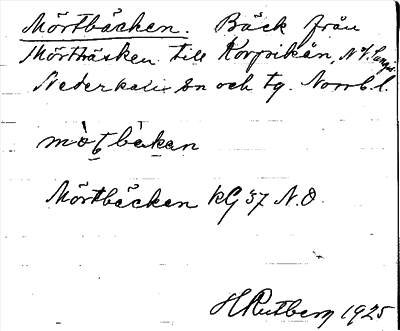 Mörtbäcken. Bäck från
Mörtträsken till Korpikån, N.V.
Nederkalix sn och tg. Norrb. l.
Mörtbäcken KG 37 N.O.
H Rutberg 1925